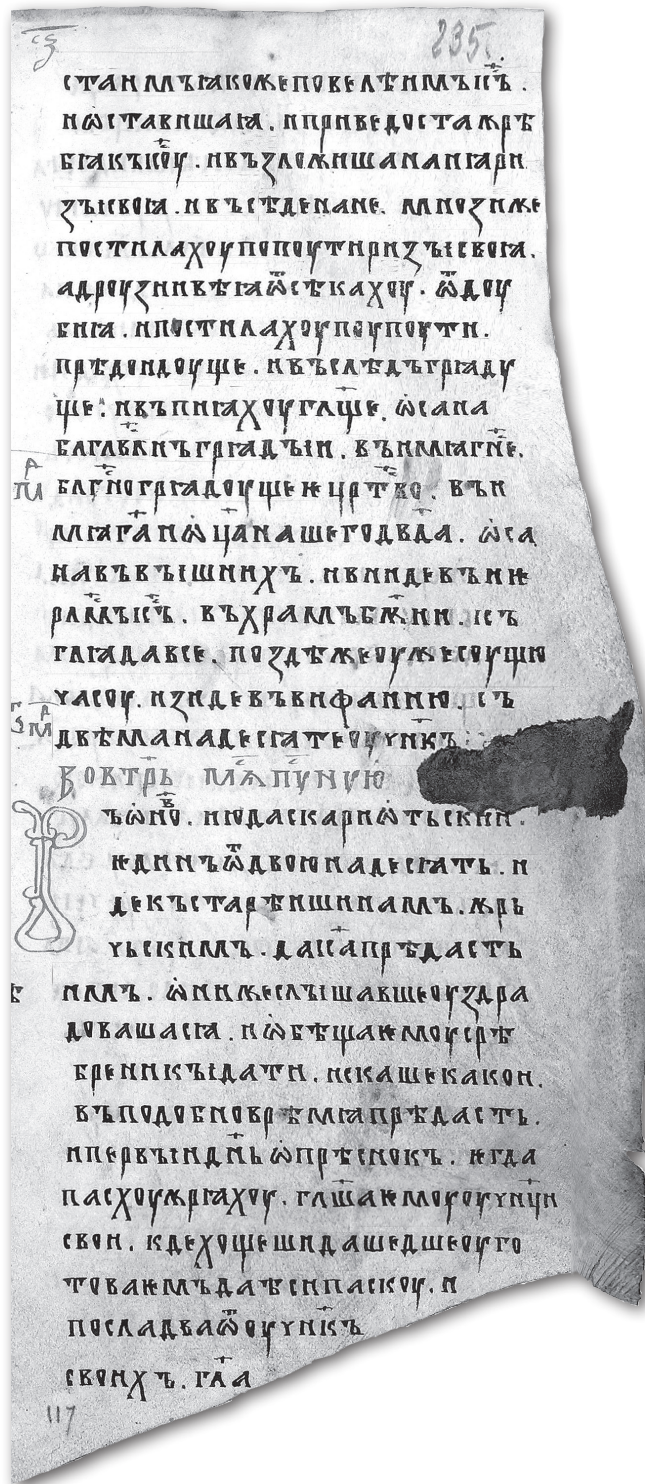 235.
станмъꙗкожеповелѣимъи҃с.
иѡставишаꙗ. иприведостажрѣ
бꙗкъі҃соу. ивъзложишананꙗри
зъісвоꙗ. ивъсѣденане. мнозиже
постилахоупопоутиризъісвоꙗ.
адроузииⷡѣꙗѿсѣкахоу. ѿдоу
биꙗ. ипостилахоупоупоути.
прѣдоидоуще. ивъслѣдъгрꙗду
ще: ивъпиꙗхоугл҃ще. ѡсана
багл҃влнъгрꙗдъіи. въимꙗгн҃е.
багс҃ногрꙗдоущеѥцрт҃во. въи
мꙗга҃иѡц҃анашегодвд҃а. ѡса
навъвъішнихъ. ивнидевъиѥ
рлм҃ъис҃ъ. въхрамъбж҃ии. ісъ
глꙗдавсе. поздѣжеоужесоущю
часоу. изидевъвифанию. съ
двѣманадесꙗтеоучнк҃ъ
вовтрь мѧпуную
ъѡно. июдаскариѡтьскии.
ѥдинъѿдвоюнадесꙗть. и
декъстарѣишинамъ. жрь
чьскимъ. даиса҃прѣдасть
имъ. ѡнижеслъішавшеоуздра
довашасꙗ. иѡбѣщаѥмоусрѣ
бреникъідати. искашекакои.
въподобноврѣмꙗпрѣдасть.
ипервъіидн҃ьѡпрѣснокъ. ѥгда
пасхоужрꙗхоу. гл҃шаѥмоуоучн҃ци
свои. кдехощешидашедшеоуго
товаѥмъдаѣсипаскоу. и
посладваѿоучнк҃ъ
своихъ. гл҃а
117